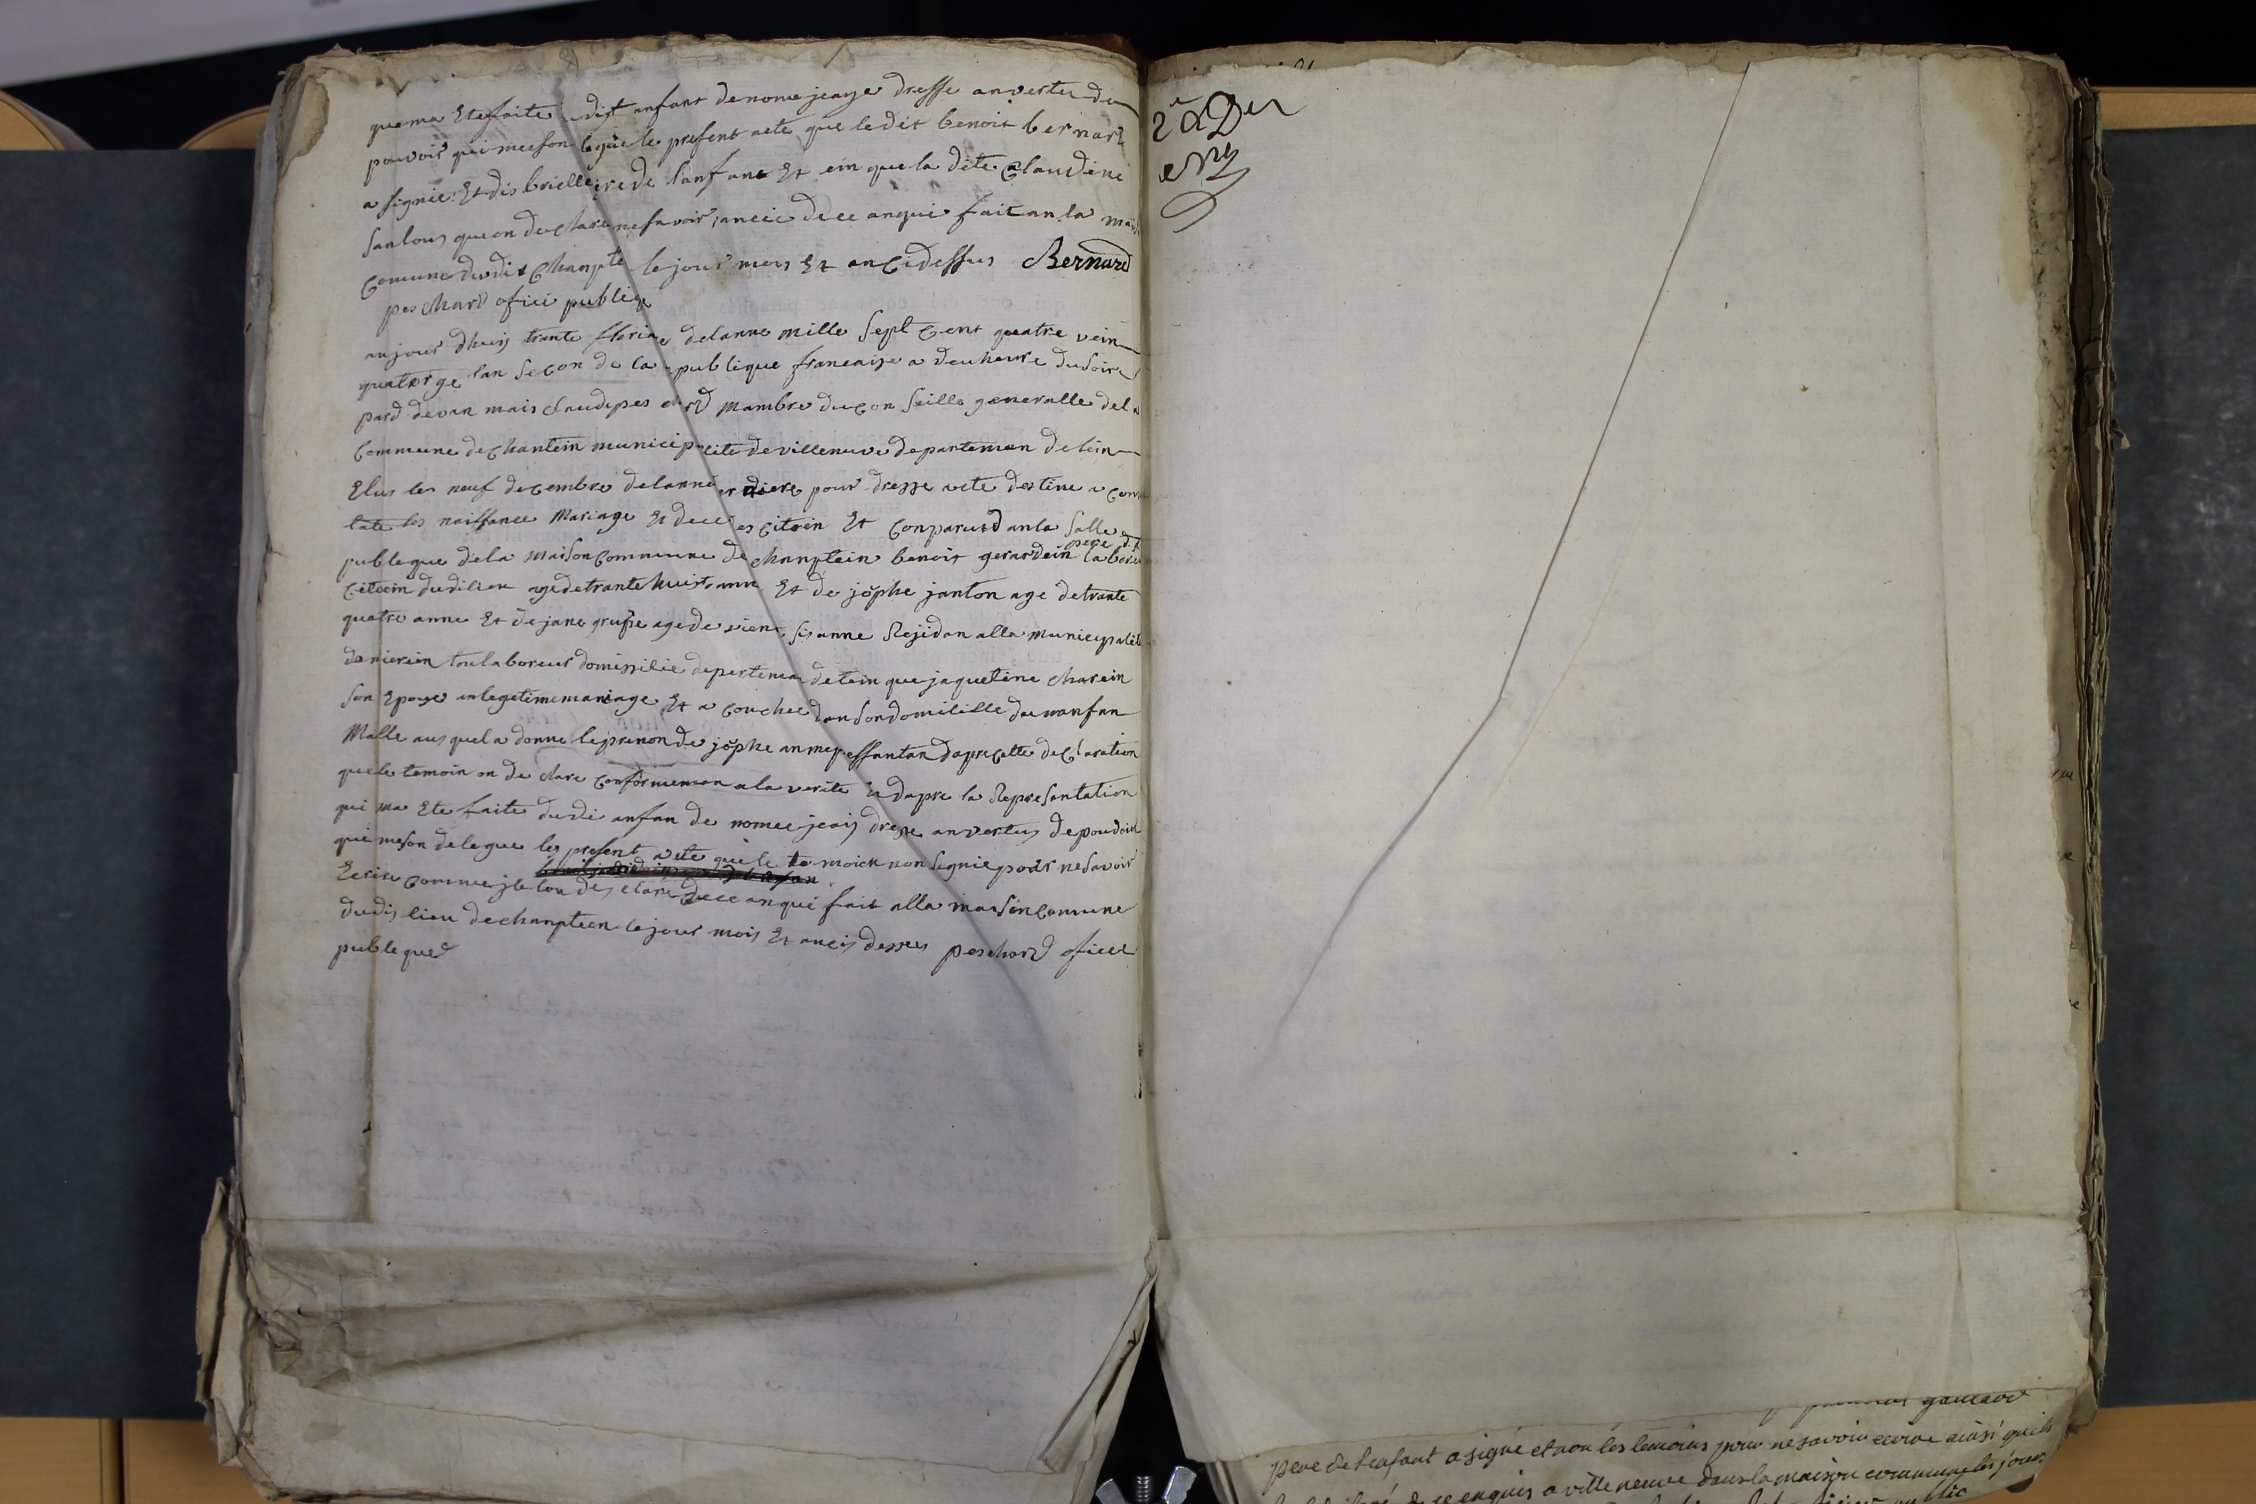 que ma Ete faite udist anfant de nome jeaye dresse anvertu du
pouvoir qui me son legue le present acte que ledit benoit bernard
a signie Et dis brielle pere de lanfant Et ein que la dite Claudine
sanlous que on declare ne savoir ancie de ce anqui fait an la mais
Comune dudit Chanpte le jour mois Et an Cidessus Bernard
peschard ofici publiq
aujour dhuij trante floriae delanne mille sept Cent quatre vein
quatorze lan secon de la publique francaize a deu heure du soire
pard devan mais claude pes ard Mambre du Con seille generalle del a
Commune de Chantein municipalite de villeneuve departeman de lein
Elus les neuf decembre delanne er diere pour dresse acte destine a Cons
tate les naissance Mariage Et dece es citoin Et Conparut dan la salle
publeque dela Maison Commune de Chanptein benoit gerardein labore
pere d. f.
Citoein dudilieu age detrante huist anne Et de jophe janton age detrante
quatre anne Et de jane gruffe age de vient sis anne Rejidan alla municipalite
danierein tou laboreur domissilie depertemen detein que jaquetine charein
son Epouze an legetime mariage Et a Couchee dan son domicille du nanfan
Malle ausquel a donne le prenon de jophe an me pessantan dapre cette declaration
que le temoin on declare Conformeman a la verite la dapre la Represantation
qui ma Ete faite dudi anfan de nomee jeaij dresse an vertus de poudoir
que meson delegue les present acte que le te moien non segnie pour ne savoir
Ecrire comme jls lon des clare de ce anqui fait alla maison Comune
dudis lieu de chanptein le jour mois Et ancis dessus peschard oficie
publeque
2e
pere de l'enfant a signé et non les temoins pour ne savoir ecrire ainsi qu'ils
de ce enquis a ville neuve dans la maison commune les jour